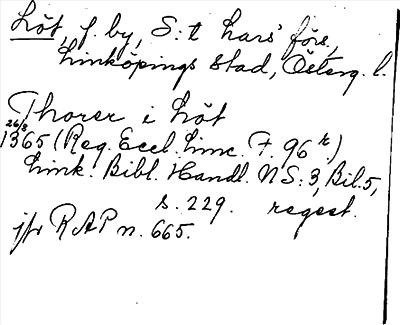 Löt, f. by, S:t Lars' förs.,
Linköpings stad, Österg. l.
Thorer i Löt
26/8 1365 (Reg. Eccl. Linc. F. 96 r.)
Link. Bibl. Handl. NS:3, Bil. 5,
s. 229. regest.
jfr RAP n. 665.